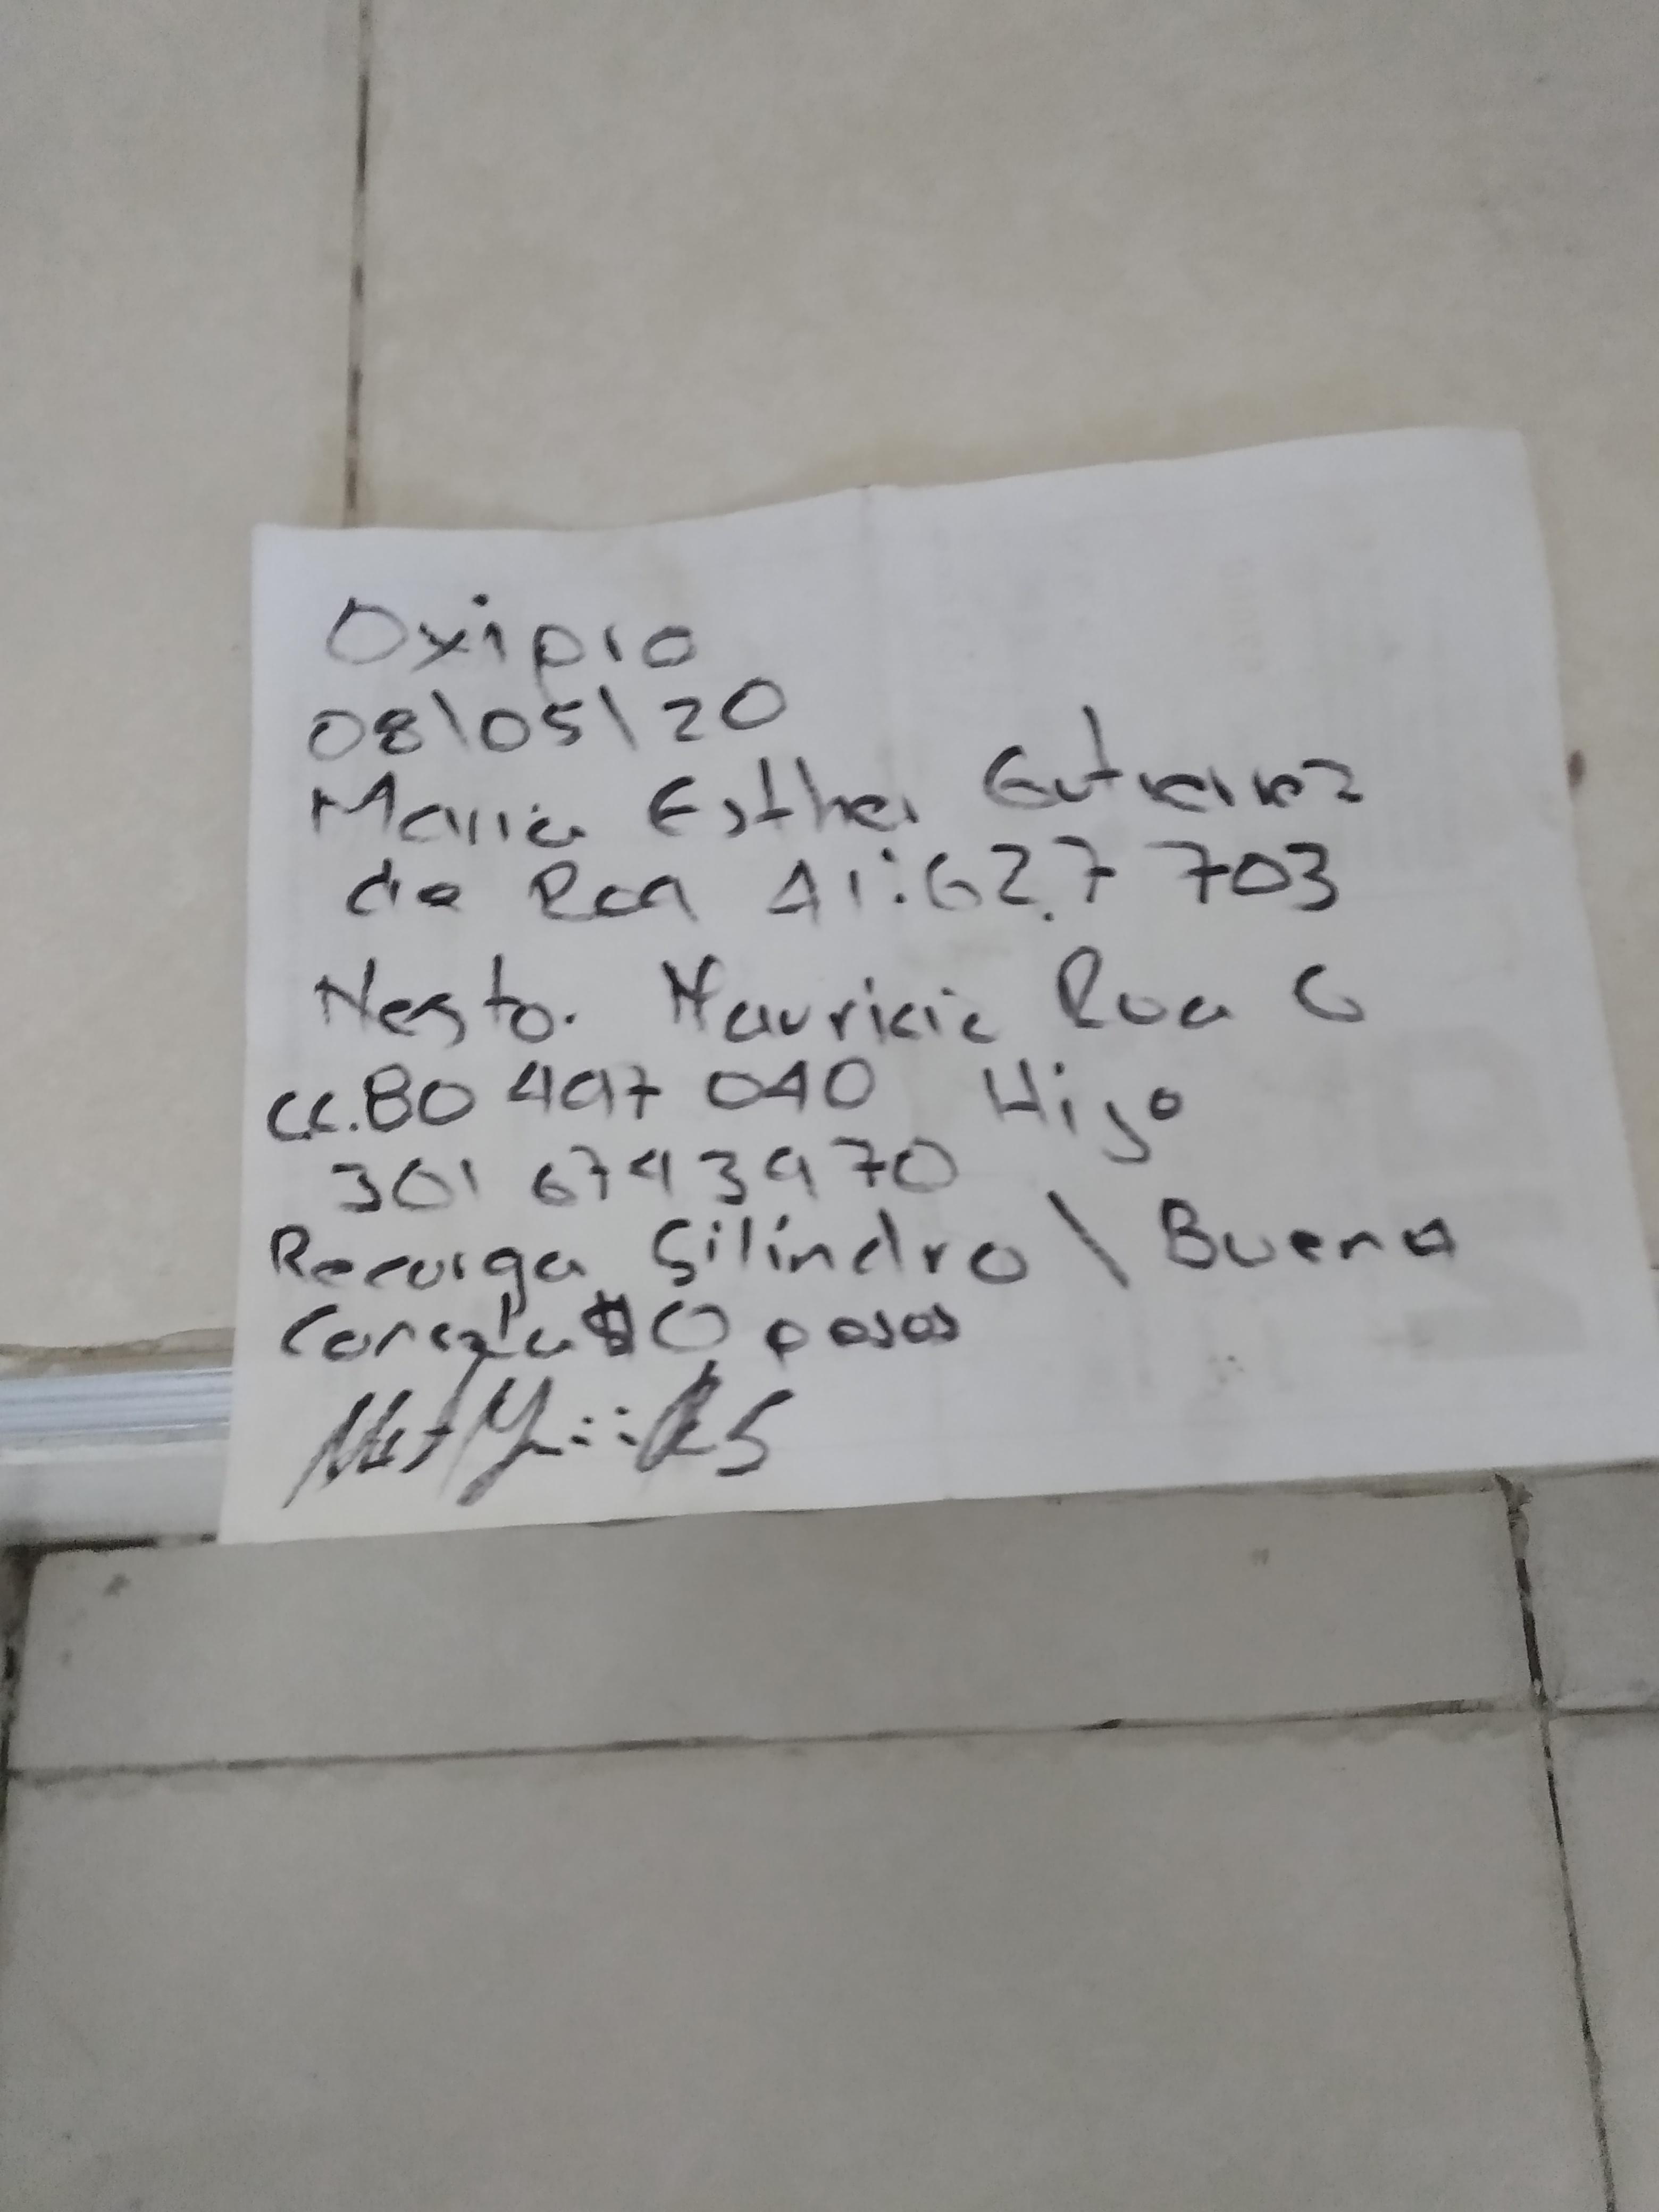 Oxipro
08\05\20
Maria Esther Gutierrez
de Roa 41:627 703
Nestor Mauricio Roa G
CC.80 497 040 Hijo
301 6743970
Recarga Silindro \ Buena
$0 pesos